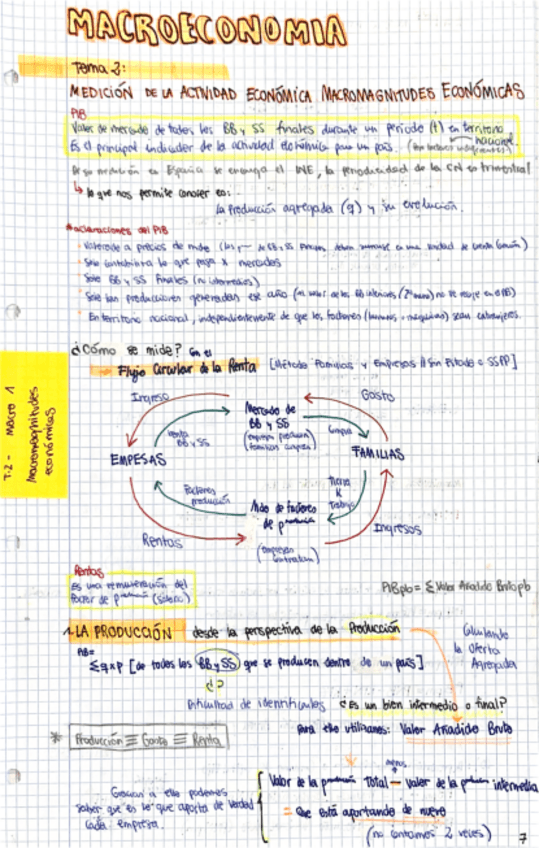 MACROECONOMIA
Tema 3:
MEDICIÓN DE LA ACTIVIDAD ECONÓMICA MACROMAGNITUDES ECONÓMICAS
PIB
Valor de mercado de todos los BB y SS finales durante un período (t) en territorio
nacional.
Es el principal indicador de la actividad económica para un país.
De su medición en España se encarga el INE, la periodicidad de la CN es trimestral
lo que nos permite conocer es:
la producción agregada (q) y su evolución.
*aclaraciones del PIB
Solo contabiliza lo que pasa x mercados
Solo BB y SS finales (no intermedios)
Solo son producciones generadas ese año
En territorio nacional, independientemente de que los factores sean extranjeros.
¿Cómo se mide? Con el
Flujo Circular de la Renta [Método Familias y Empresas // Sin Estado o SSPP]
Ingreso
Gasto
Mercado de
BB y SS
(empresas producen)
(familias compran)
Venta
BB y SS
Compra
EMPESAS
FAMILIAS
Factores
producción
Tierra
K
Trabajo
Mdo de factores
de p
Rentas
Ingresos
(empresas
contratan)
T.2 - MACRO 1
Macromagnitudes
económicas
Rentas
Es una remuneración del
factor de p
PIBpb = Σ Valor Añadido Bruto pb
1. LA PRODUCCIÓN desde la perspectiva de la Producción
PIB =
Σ q x P [de todos los BB y SS que se producen dentro de un país]
Calculando
la Oferta
Agregada
¿?
Dificultad de identificarlos ¿Es un bien intermedio o final?
Para ello utilizamos: Valor Añadido Bruto
* Producción ≡ Gasto ≡ Renta
menos
Valor de la Total — Valor de la intermedia
Gracias a ello podemos
saber qué es lo que aporta de verdad
cada empresa.
= Que está aportando de nuevo
(no contamos 2 veces)
7